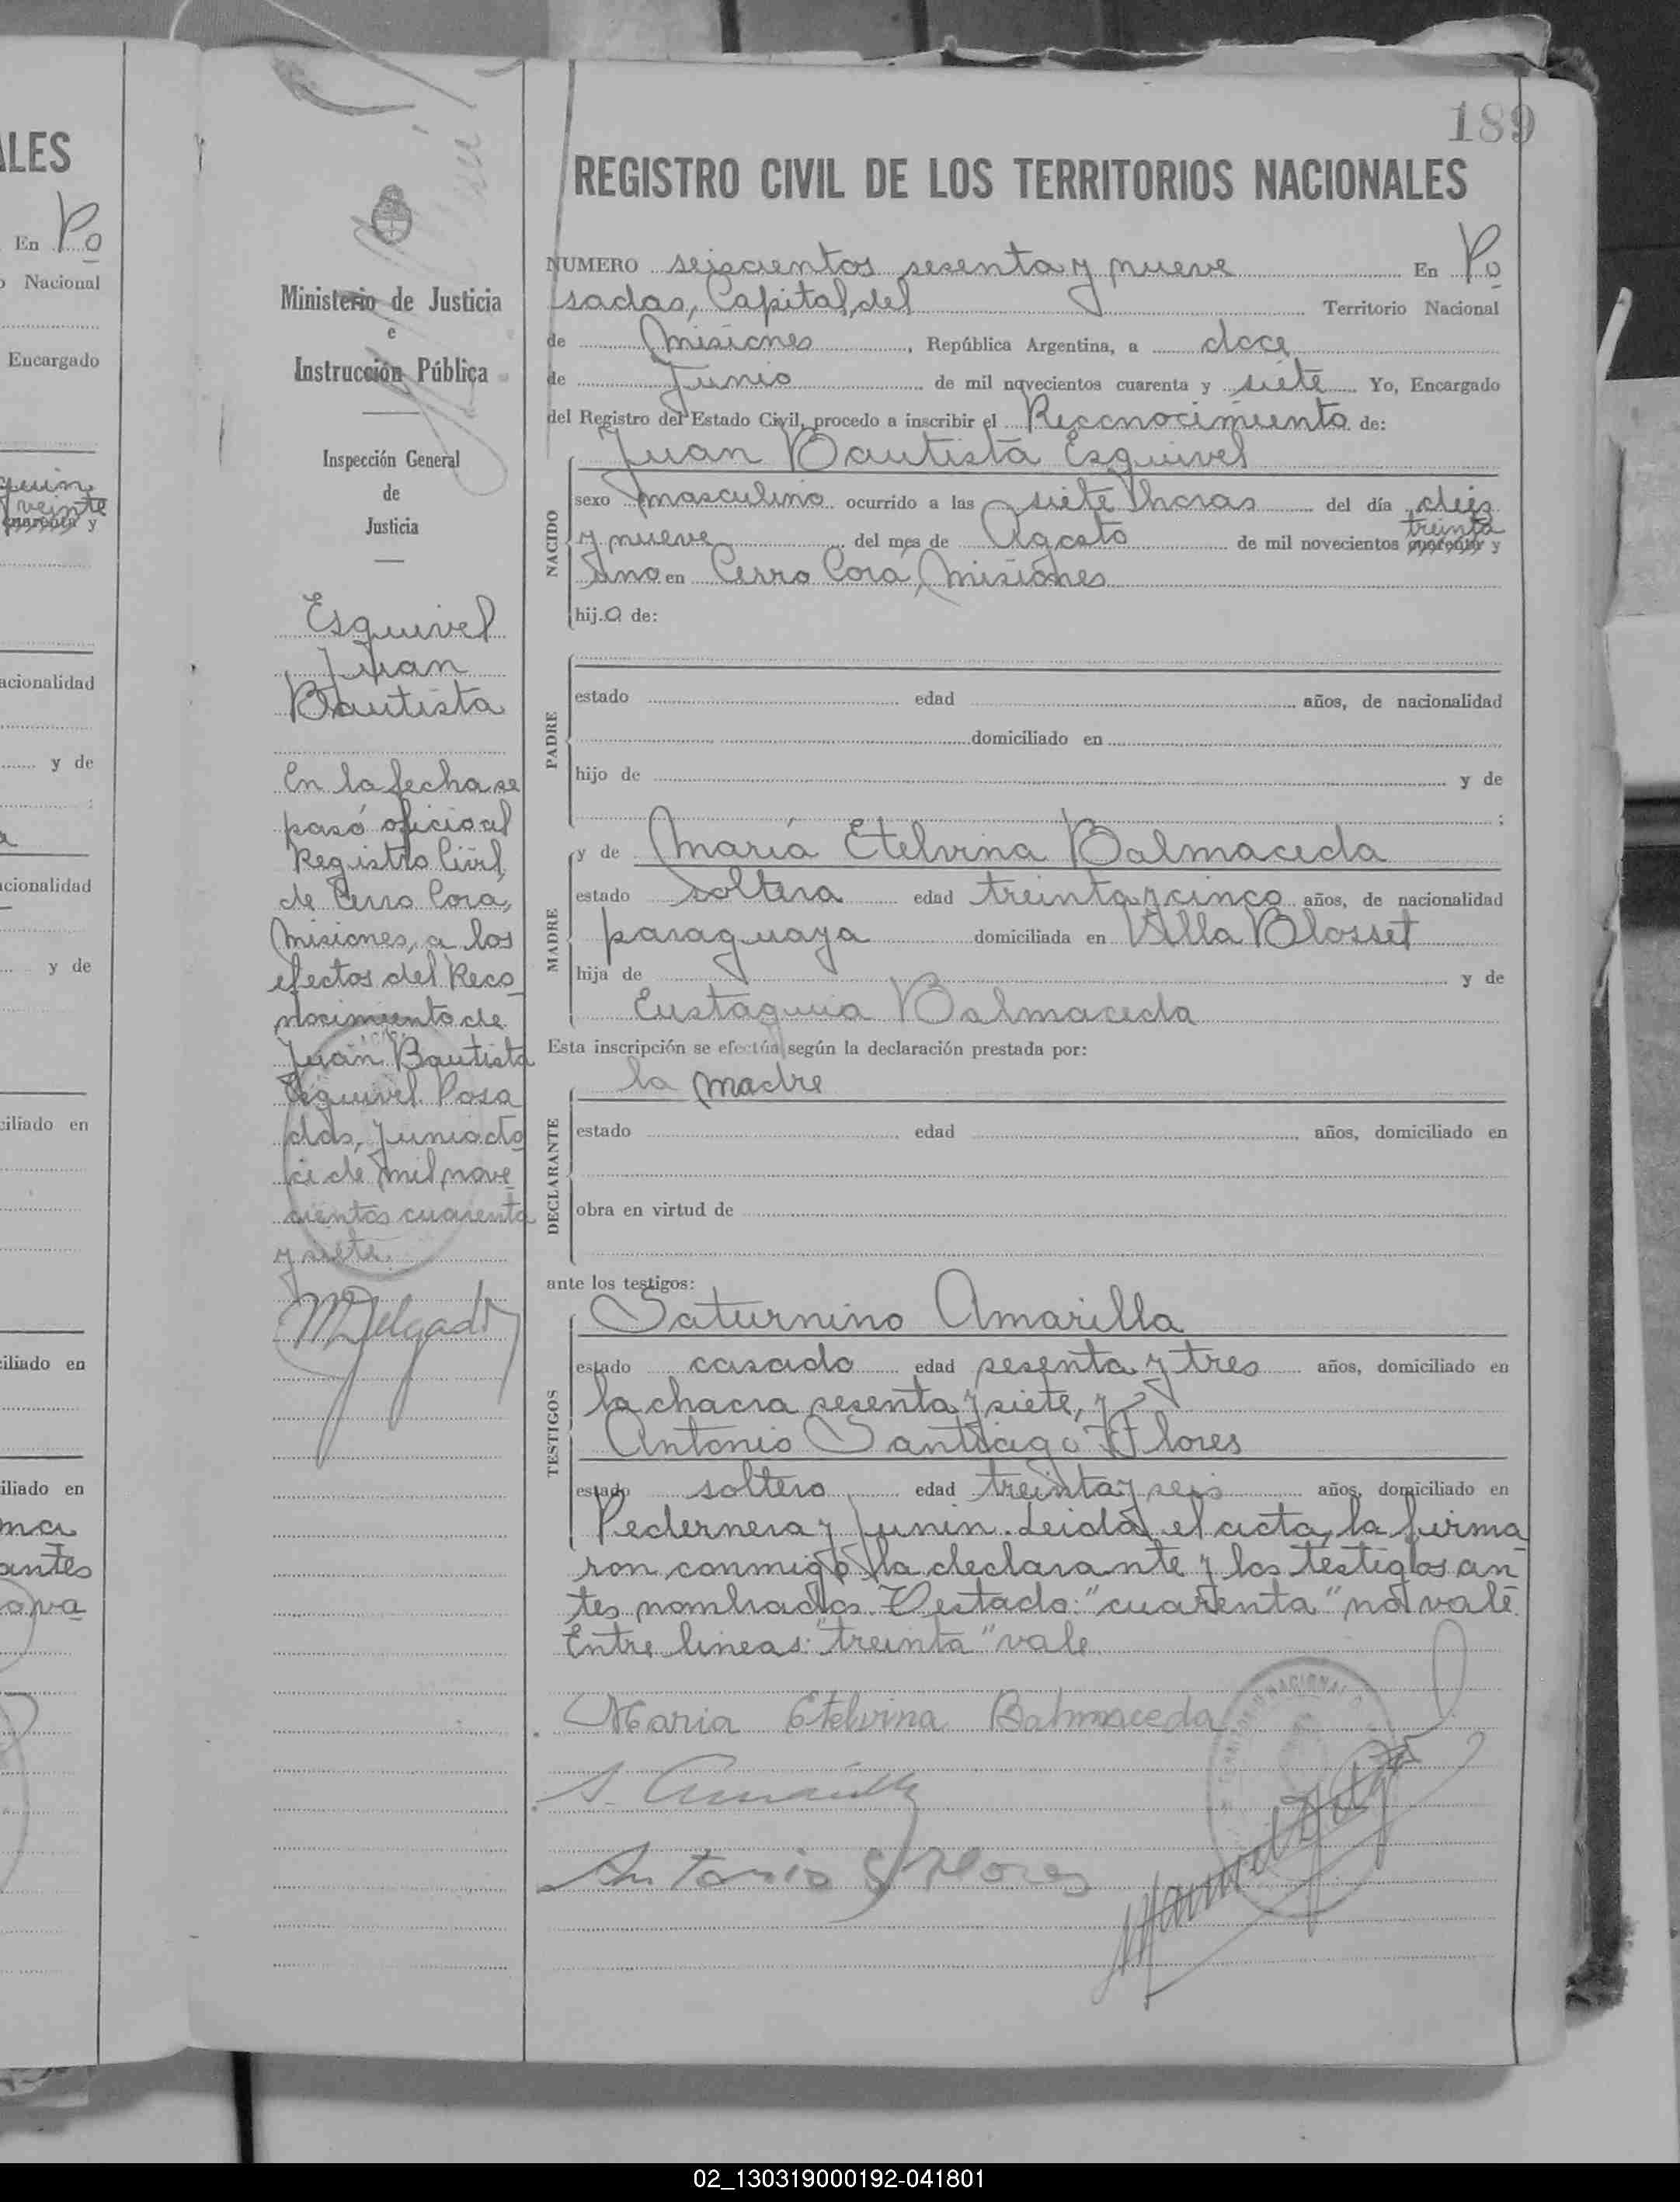 ALES
En Po
o Nacional
Encargado
quin
veinte
cuarenta y
acionalidad
y de
a
acionalidad
y de
ciliado en
ciliado en
iliado en
ma
antes
ava
189
Ministerio de Justicia
e
Instrucción Pública
Inspección General
de
Justicia
Esquivel
Juan
Bautista
En la fecha se
pasó oficio al
Registro Civil
de Cerro Corá,
Misiones, a los
efectos del Reco
nocimiento de
Juan Bautista
Esquivel. Posa
das, Junio do
ce de mil nove
cientos cuarenta
y siete.
MDelgado
REGISTRO CIVIL DE LOS TERRITORIOS NACIONALES
NUMERO seiscientos sesenta y nueve En Po
sadas, Capital, del Territorio Nacional
de Misiones, República Argentina, a doce
de Junio de mil novecientos cuarenta y siete Yo, Encargado
del Registro del Estado Civil, procedo a inscribir el Reconocimiento de:
Juan Bautista Esquivel
NACIDO
sexo masculino ocurrido a las siete horas del día diez
treinta
y nueve del mes de Agosto de mil novecientos cuarenta y
uno en Cerro Corá, Misiones
hijo de:
PADRE
estado edad años, de nacionalidad
domiciliado en
hijo de y de
;
MADRE
y de María Etelvina Balmaceda
estado soltera edad treinta y cinco años, de nacionalidad
paraguaya domiciliada en Villa Blosset
hija de y de
Eustaquia Balmaceda
Esta inscripción se efectúa según la declaración prestada por:
la madre
DECLARANTE
estado edad años, domiciliado en
obra en virtud de
ante los testigos:
Saturnino Amarilla
TESTIGOS
estado casado edad sesenta y tres años, domiciliado en
la chacra sesenta y siete, y
Antonio Santiago Flores
estado soltero edad treinta y seis años, domiciliado en
Pedernera y Junin. Leida el acta, la firma
ron conmigo la declarante y los testigos an
tes nombrados. Testado: "cuarenta" no vale.
Entre lineas: "treinta" vale.
Maria Etelvina Balmaceda
S. Amarilla
Antonio S Flores
02_130319000192-041801